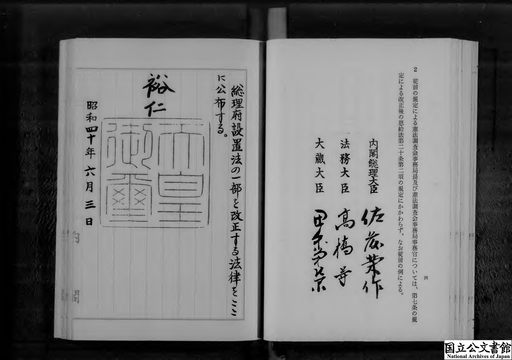 2 従前の規定による憲法調査会事務局長及び憲法調査会事務局事務官については、第七条の規
定による改正後の恩給法第二十条第二項の規定にかかわらず、なお従前の例による。
内閣総理大臣 佐藤榮作
法務大臣 高橋等
大蔵大臣 田中角榮
総理府設置法の一部を改正する法律をここ
に公布する。
裕仁
天皇
御璽
昭和四十年六月三日
国立公文書館
National Archives of Japan